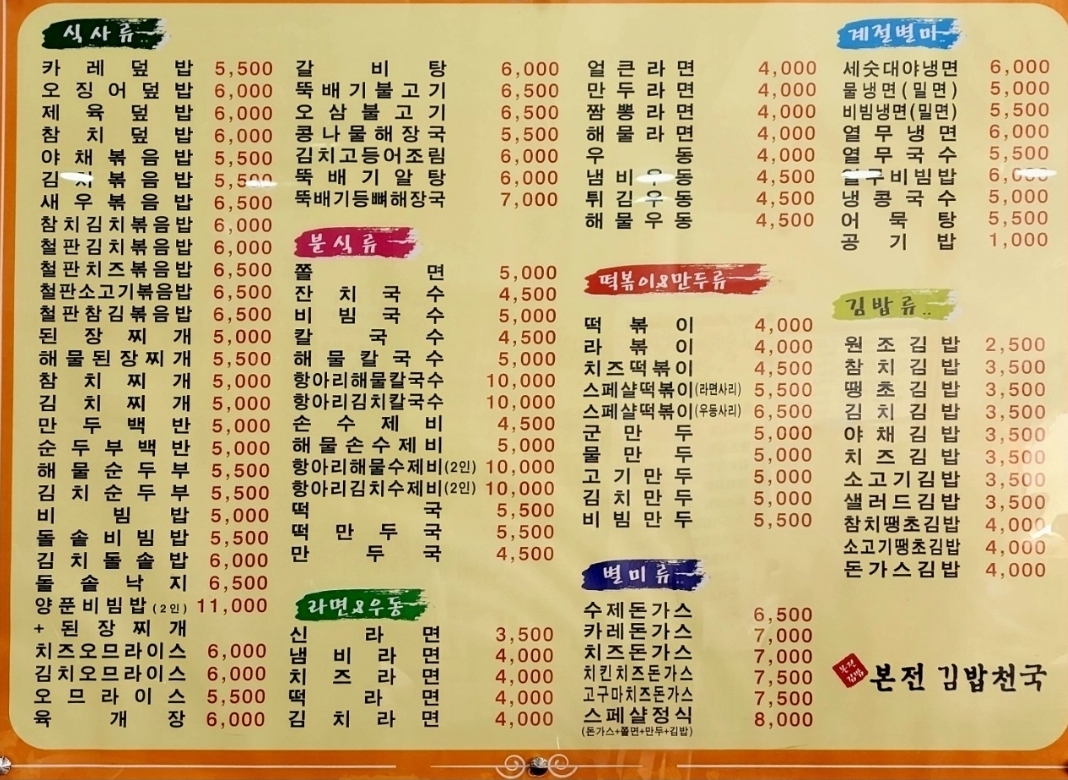 식사류
카레덮밥 5,500
오징어덮밥 6,000
제육덮밥 6,000
참치덮밥 6,000
야채볶음밥 5,500
김치볶음밥 5,500
새우볶음밥 6,500
참치김치볶음밥 6,000
철판김치볶음밥 6,000
철판치즈볶음밥 6,500
철판소고기볶음밥 6,500
철판참김볶음밥 6,500
된장찌개 5,000
해물된장찌개 5,500
참치찌개 5,000
김치찌개 5,000
만두백반 5,000
순두부백반 5,000
해물순두부 5,500
김치순두부 5,500
비빔밥 5,000
돌솥비빔밥 5,500
김치돌솥밥 6,000
돌솥낙지 6,500
양푼비빔밥(2인) 11,000
+된장찌개
치즈오므라이스 6,000
김치오므라이스 6,000
오므라이스 5,500
육개장 6,000
갈비탕 6,000
뚝배기불고기 6,500
오삼불고기 6,500
콩나물해장국 5,500
김치고등어조림 6,000
뚝배기알탕 6,000
뚝배기등뼈해장국 7,000
분식류
쫄면 5,000
잔치국수 4,500
비빔국수 5,000
칼국수 4,500
해물칼국수 5,000
항아리해물칼국수 10,000
항아리김치칼국수 10,000
손수제비 4,500
해물손수제비 5,000
항아리해물수제비(2인) 10,000
항아리김치수제비(2인) 10,000
떡국 5,500
떡만두국 5,500
만두국 4,500
라면&우동
신라면 3,500
냄비라면 4,000
치즈라면 4,000
떡라면 4,000
김치라면 4,000
얼큰라면 4,000
만두라면 4,000
짬뽕라면 4,000
해물라면 4,000
우동 4,000
냄비우동 4,500
튀김우동 4,500
해물우동 4,500
떡볶이&만두류
떡볶이 4,000
라볶이 4,000
치즈떡볶이 4,500
스페샬떡볶이(라면사리) 5,500
스페샬떡볶이(우동사리) 6,500
군만두 5,000
물만두 5,000
고기만두 5,000
김치만두 5,000
비빔만두 5,500
별미류
수제돈가스 6,500
카레돈가스 7,000
치즈돈가스 7,000
치킨치즈돈가스 7,500
고구마치즈돈가스 7,500
스페샬정식 8,000
(돈가스+쫄면+만두+김밥)
계절별미
세숫대야냉면 6,000
물냉면(밀면) 5,000
비빔냉면(밀면) 5,500
열무냉면 6,000
열무국수 5,500
열무비빔밥 6,000
냉콩국수 5,000
어묵탕 5,500
공기밥 1,000
김밥류
원조김밥 2,500
참치김밥 3,500
땡초김밥 3,500
김치김밥 3,500
야채김밥 3,500
치즈김밥 3,500
소고기김밥 3,500
샐러드김밥 3,500
참치땡초김밥 4,000
소고기땡초김밥 4,000
돈가스김밥 4,000
본전
김밥
본전 김밥천국